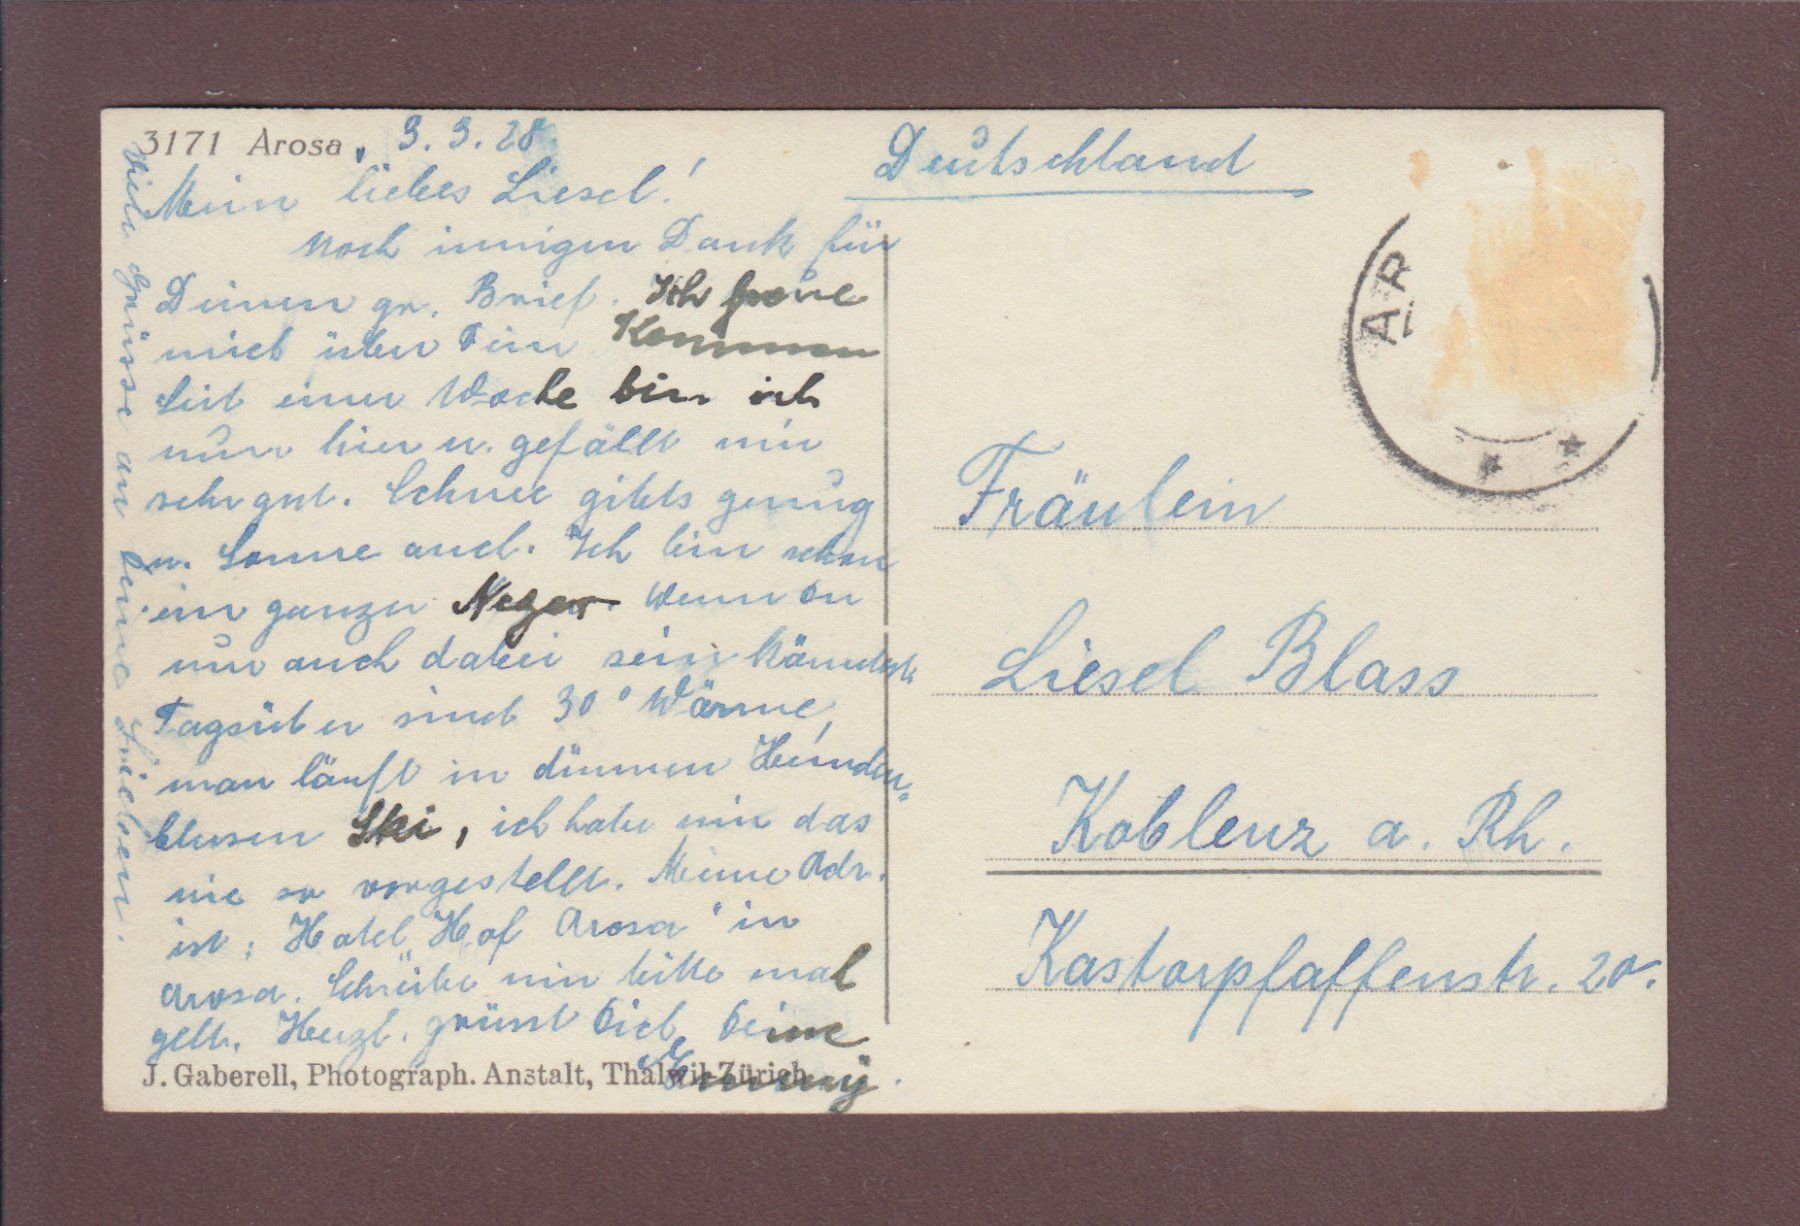 3171 Arosa, 3.3.28.
Mein liebes Liesel!
Noch innigen Dank für
Deinen gr. Brief. Ich freue
mich über Dein Kommen
Seit einer Woche bin ich
nun hier u. gefällt mir
sehr gut. Schnee gibts genug
u. Sonne auch. Ich bin schon
ein ganzer Neger. Wenn Du
nur auch dabei sein könntest.
Tagsüber sind 30° Wärme,
man läuft in dünnen Hemden-
blusen Ski, ich habe mir das
nie so vorgestellt. Meine Adr.
ist: Hotel „Hof Arosa" in
Arosa. Schreibe mir bitte mal
gell. Herzl. grüsst Dich Deine
Emmy.
Viele Grüsse an Deine Lieben.
J. Gaberell, Photograph. Anstalt, Thalwil-Zürich
Deutschland
AR
Fräulein
Liesel Blass
Koblenz a. Rh.
Kastorpfaffenstr. 20.